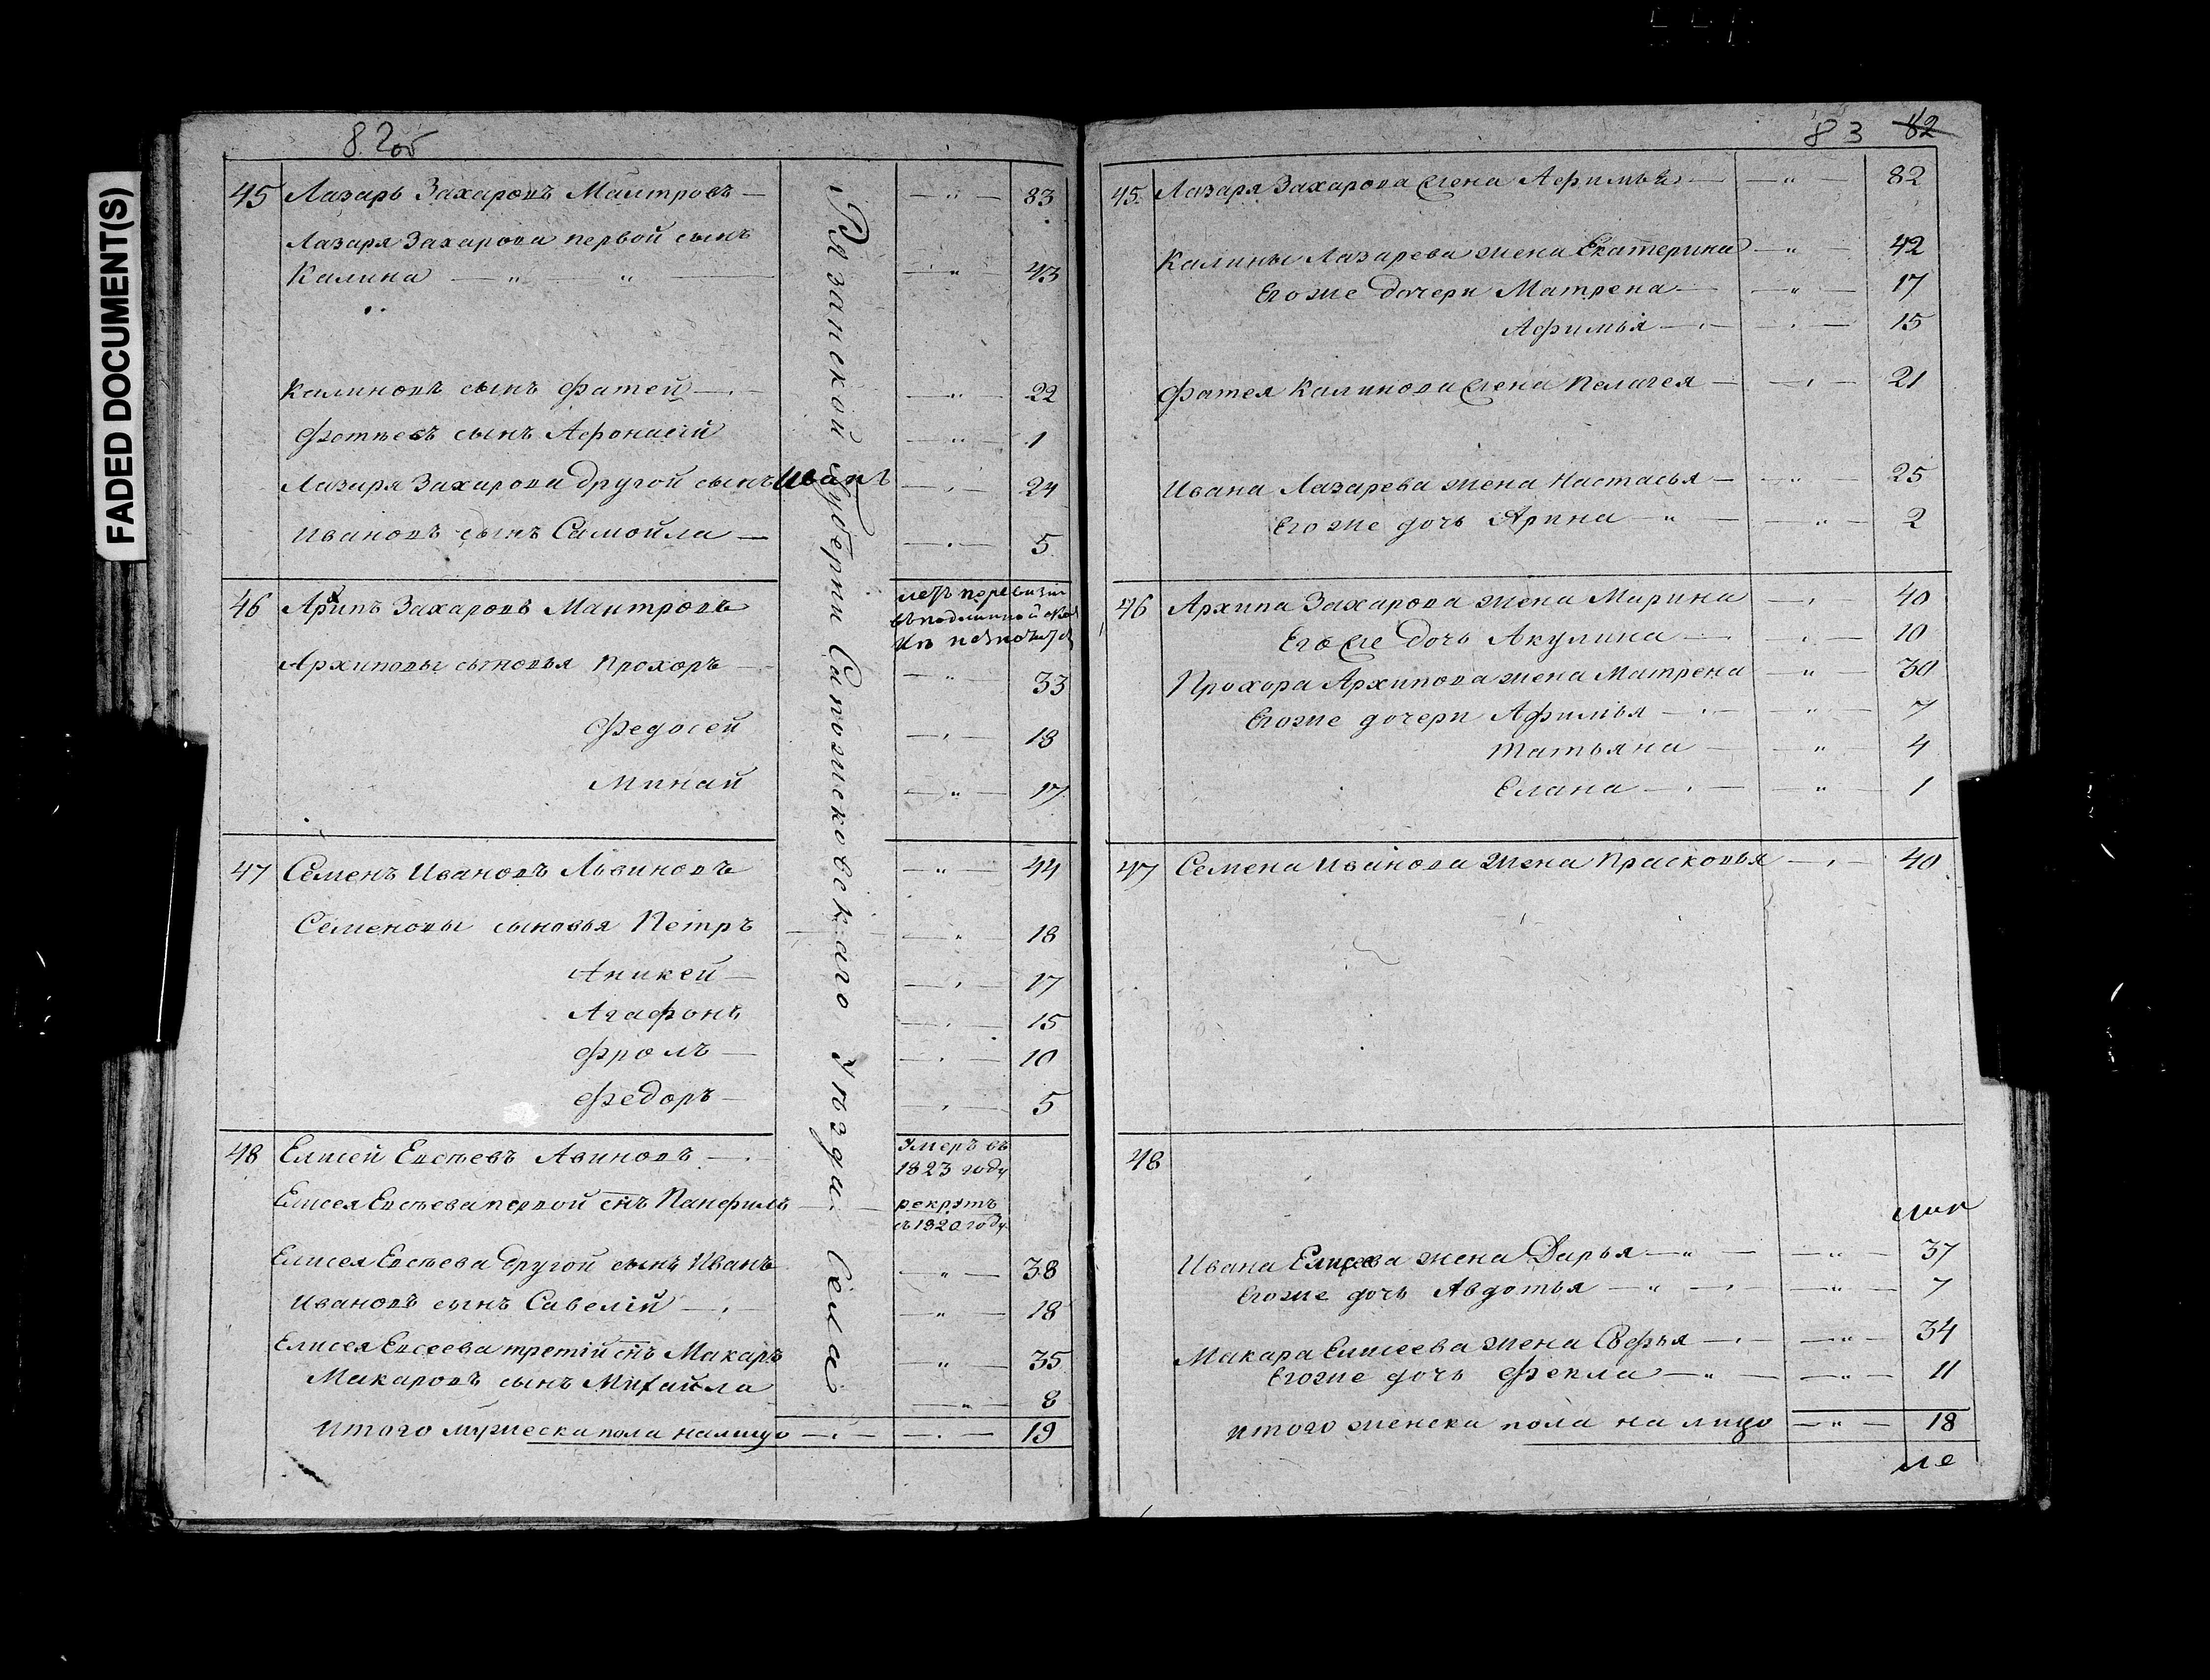 FADED DOCUMENT(S)
82об
45 Лазарь Захаровъ Маитровъ — „ — 83
Лазаря Захарова первой сынъ
Калина — „ — „ — 43
Калиновъ сынъ Фатей — „ — 22
Фотѣевъ сынъ Афонасій — „ — 1
Лазаря Захарова другой сынъ Иванъ — „ — 24
Ивановъ сынъ Самойла — „ — 5
46 Архипъ Захаровъ Маитровъ
Архиповы сыновья Прохоръ — „ — 33
Федосей — „ — 18
Минай — „ — 17
47 Семенъ Ивановъ Львиновъ — „ — 44
Семеновы сыновья Петръ — „ — 18
Аникей — „ — 17
Агафонъ — „ — 15
Фролъ — „ — 10
Федоръ — „ — 5
48 Елисей Евсѣевъ Авиновъ — умеръ въ
1823 году
Елисея Евсѣева первой снъ Панфилъ — рекрутъ
въ 1820 году
Елисея Евсѣева другой сынъ Иванъ — „ — 38
Ивановъ сынъ Савелій — „ — 18
Елисея Евсеева третій снъ Макаръ „ — 35
Макаровъ сынъ Михайла — „ — 8
Итого мужеска пола налицо — „ — 19
Рязанской Губерніи Сапожсковскаго Уѣзда Села
83 82
45 Лазаря Захарова жена Афимья — „ — 82
Калины Лазарева жена Екатерина — „ — 42
Его же дочери Матрена — „ — 17
Афимья — „ — 15
Фатея Калинова жена Пелагея — „ — 21
Ивана Лазарева жена Настасья — „ — 25
Его же дочь Арина — „ — 2
46 Архипа Захарова жена Марина — „ — 40
Его же дочь Акулина — „ — 10
Прохора Архипова жена Матрена — „ — 30
Его же дочери Афимья — „ — 7
Татьяна — „ — 4
Елана — „ — 1
47 Семена Иванова жена Прасковья — „ — 40
48
Ивана Елисева жена Дарья — „ — 37
Его же дочь Авдотья — „ — 7
Макара Елисеева жена Софья — „ — 34
Его же дочь Фекла — „ — 11
Итого женска пола на лицо — „ — 18